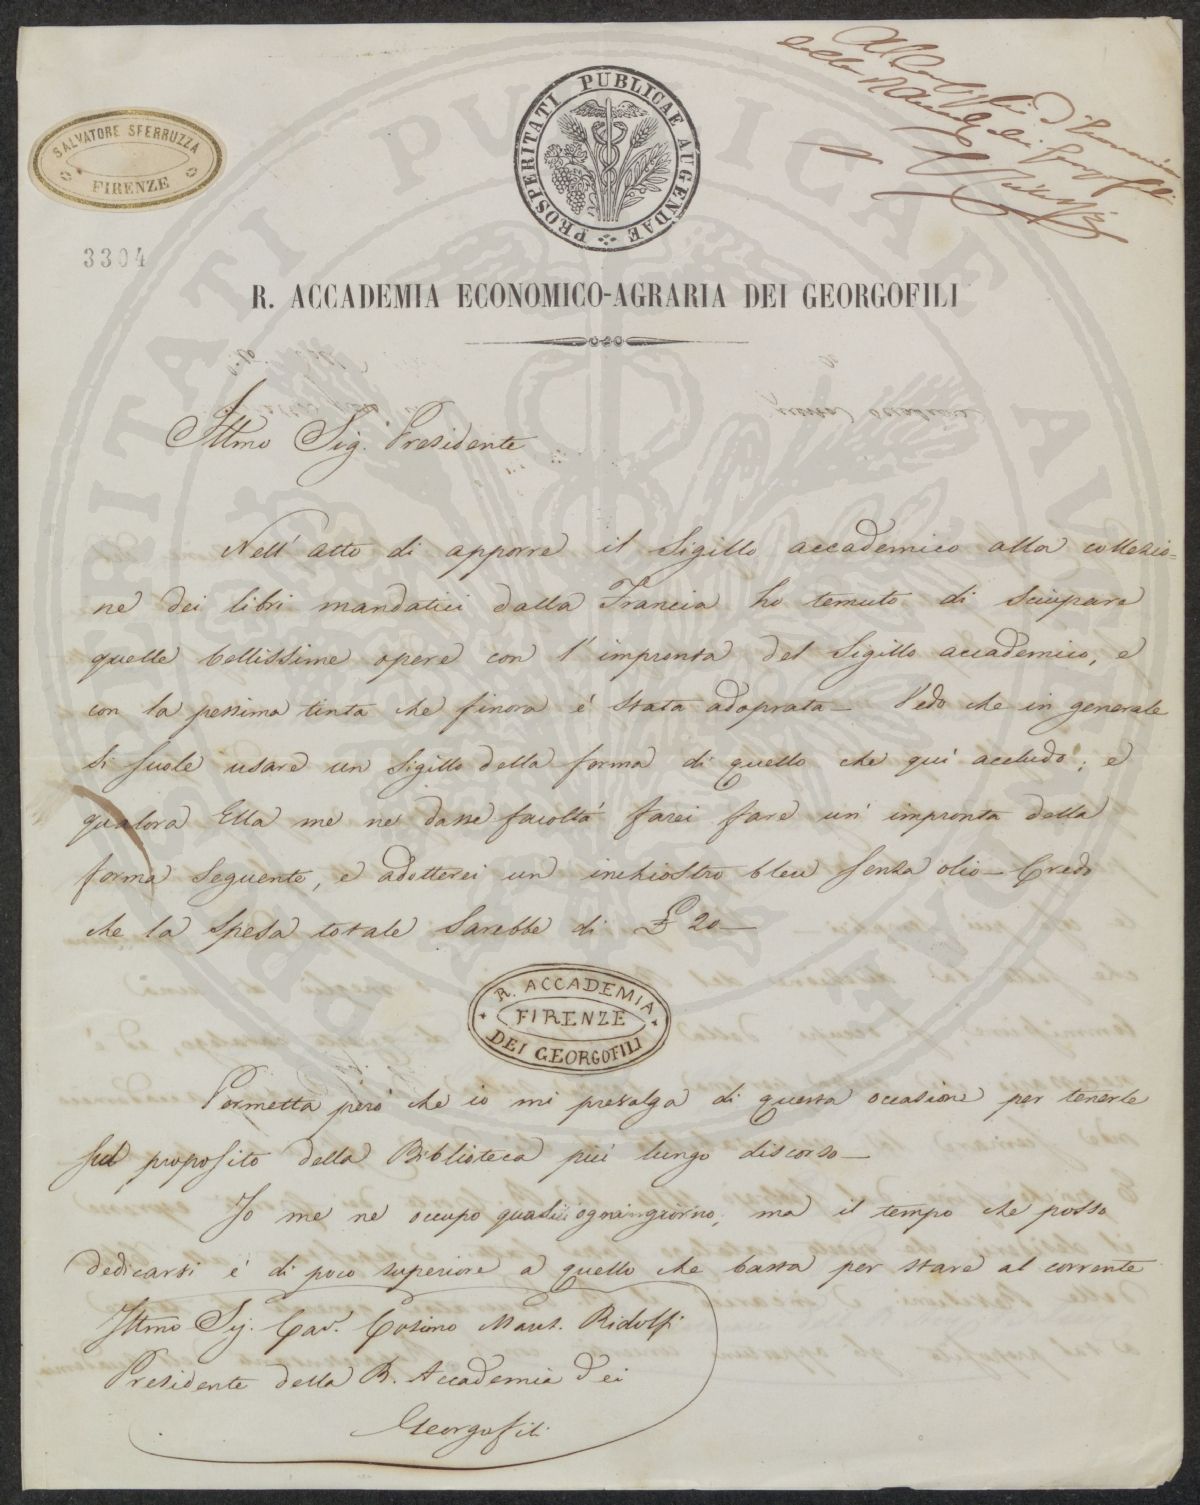 PROSPERITATI PUBLICAE AUGENDAE
SALVATORE SFERRUZZA
FIRENZE
3304
R. ACCADEMIA ECONOMICO-AGRARIA DEI GEORGOFILI
Illmo Sig. Presidente
Nell' atto di apporre il Sigillo accademico alla collezio=
ne dei libri mandatici dalla Francia ho temuto di sciupare
quelle bellissime opere con l' impronta del Sigillo accademico, e
con la pessima tinta che finora è stata adoprata_ Vedo che in generale
si suole usare un Sigillo della forma di quello che quì accludo; e
qualora Ella me ne dasse facoltà farei fare un' impronta della
forma seguente, e adotterei un inchiostro bleu senza olio_ Credo
che la spesa totale sarebbe di £ 20_
R. ACCADEMIA
FIRENZE
DEI GEORGOFILI
Permetta però che io mi prevalga di questa occasione per tenerle
sul proposito della Biblioteca più lungo discorso_
Io me ne occupo quasi ogni giorno, ma il tempo che posso
dedicarvi è di poco superiore a quello che basta per stare al corrente
Illmo Sig. Cav. Cosimo March. Ridolfi
Presidente della R. Accademia dei
Georgofili